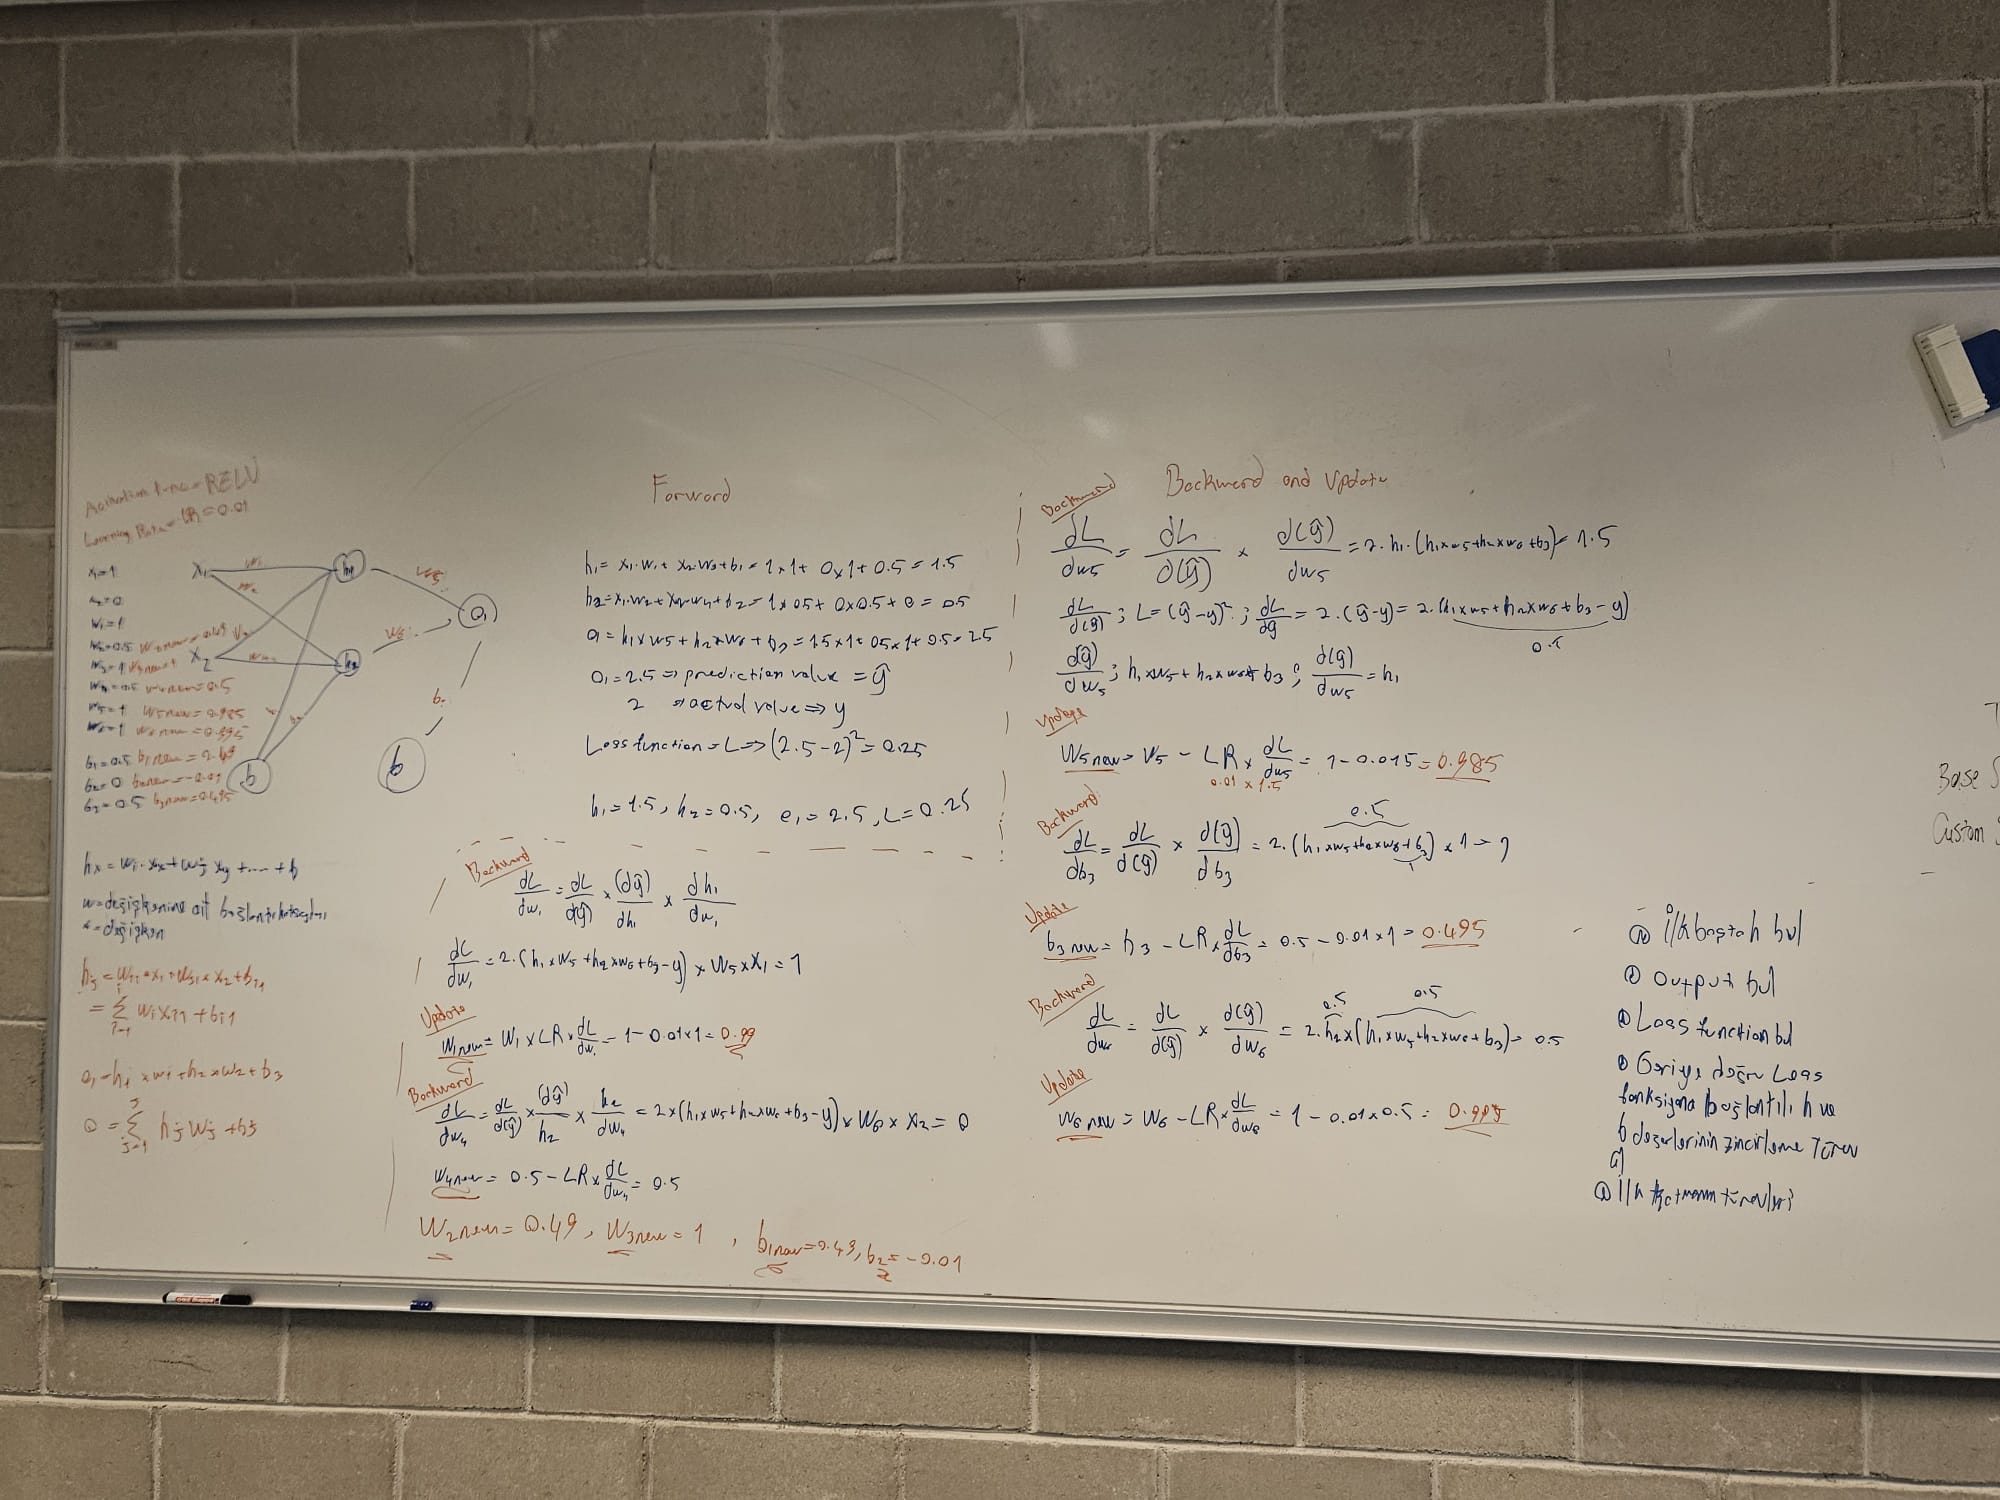 Activation func = RELU
Learning Rate = LR = 0.01
x₁=1
x₂=0
w₁=1
w₂=0.5 w₂new=0.49
w₃=1 w₃new=1
w₄=0.5 w₄new=0.5
w₅=1 w₅new=0.985
w₆=1 w₆new=0.995
b₁=0.5 b₁new=
b₂=0 b₂new=-0.01
b₃=0.5 b₃new=0.495
x₁
x₂
h₁
h₂
o₁
b
b
w₁
w₂
w₃
w₄
w₅
w₆
b.
w=değişkenine ait bağlantı katsayıları
x=değişken
Forward
h₁= x₁.w₁+ x₂.w₃+b₁ = 1x1+ 0x1+0.5 = 1.5
h₂=x₁.w₂+x₂.w₄+b₂ = 1x0.5+ 0x0.5+0 = 0.5
O₁= h₁xw₅+h₂xw₆+b₃ = 1.5x1+0.5x1+0.5=2.5
O₁=2.5 ⇒ prediction value = ŷ
2 ⇒ actual value ⇒ y
Loss function = L ⇒ (2.5-2)²=0.25
h₁=1.5, h₂=0.5, o₁=2.5, L=0.25
Backward
dL/dw₁ = dL/d(ŷ) x (dŷ)/dh₁ x dh₁/dw₁
dL/dw₁ = 2.(h₁xw₅+h₂xw₆+b₃-y) x w₅ x x₁ = 1
Update
w₁new= w₁ x LR x dL/dw₁ = 1-0.01x1 = 0.99
Backward
dL/dw₄ = dL/d(ŷ) x (dŷ)/h₂ x h₂/dw₄ = 2x(h₁xw₅+h₂xw₆+b₃-y) x w₆ x x₂ = 0
w₄new = 0.5 - LR x dL/dw₄ = 0.5
w₂new=0.49, w₃new=1, b₁new=0.49, b₂=-0.01
Backward and Update
Backward
dL/dw₅ = dL/d(ŷ) x d(ŷ)/dw₅ = 2.h₁.(h₁xw₅+h₂xw₆+b₃)=1.5
dL/d(ŷ) ; L=(ŷ-y)² ; dL/dŷ = 2.(ŷ-y) = 2.(h₁xw₅+h₂xw₆+b₃-y)
0.5
d(ŷ)/dw₅ ; h₁xw₅+h₂xw₆+b₃ ; d(ŷ)/dw₅ = h₁
Update
w₅new = w₅ - LR x dL/dw₅ = 1-0.015=0.985
0.01 x 1.5
Backward
0.5
dL/db₃ = dL/d(ŷ) x d(ŷ)/db₃ = 2.(h₁xw₅+h₂xw₆+b₃) x 1 = 1
Update
b₃new = b₃ - LR x dL/db₃ = 0.5-0.01x1 = 0.495
Backward
0.5 0.5
dL/dw₆ = dL/d(ŷ) x d(ŷ)/dw₆ = 2.h₂x(h₁xw₅+h₂xw₆+b₃) = 0.5
Update
w₆new = w₆ - LR x dL/dw₆ = 1-0.01x0.5 = 0.995
İlk baştah bul
Output bul
Loss function bul
Geriye doğru Loss
fonksiyona bağlantılı h ve
b değerlerinin zincirleme Türev
al
İlk katmanın türevleri
Base
Custom